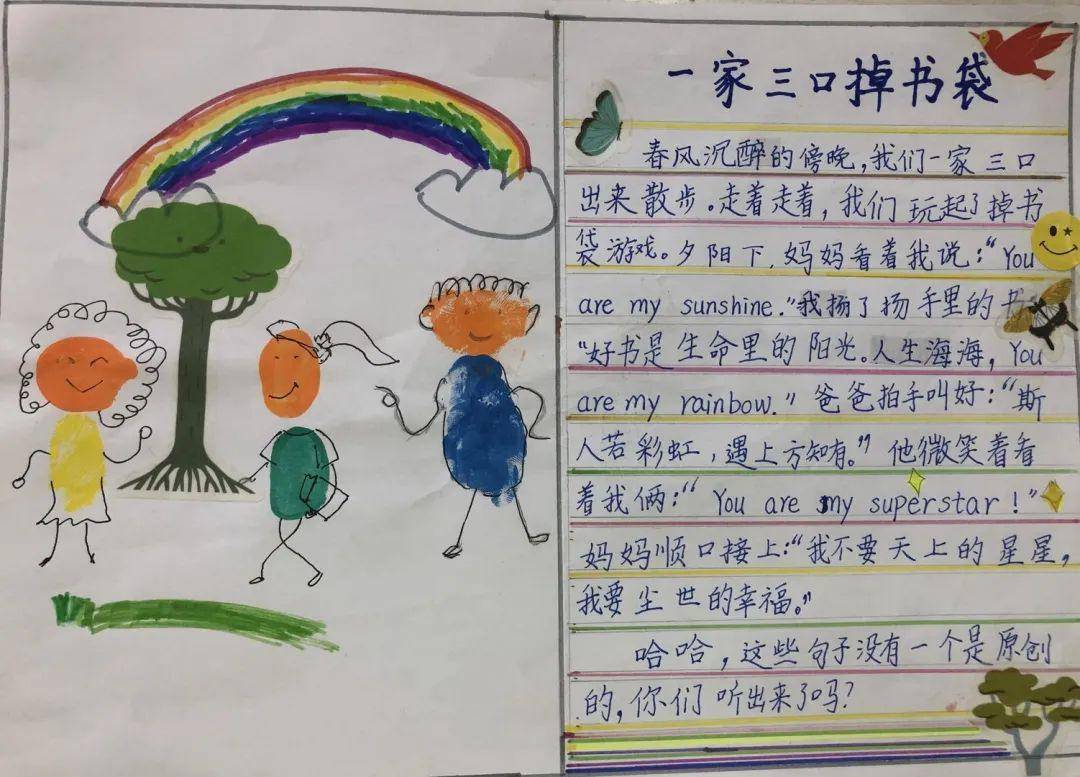 一家三口掉书袋
春风沉醉的傍晚，我们一家三口
出来散步。走着走着，我们玩起了掉书
袋游戏。夕阳下，妈妈看着我说：“You
are my sunshine.”我扬了扬手里的书
“好书是生命里的阳光。人生海海，You
are my rainbow.”爸爸拍手叫好：“斯
人若彩虹，遇上方知有。”他微笑着看
着我俩：“You are my superstar！”
妈妈顺口接上：“我不要天上的星星，
我要尘世的幸福。”
哈哈，这些句子没有一个是原创
的，你们听出来了吗？